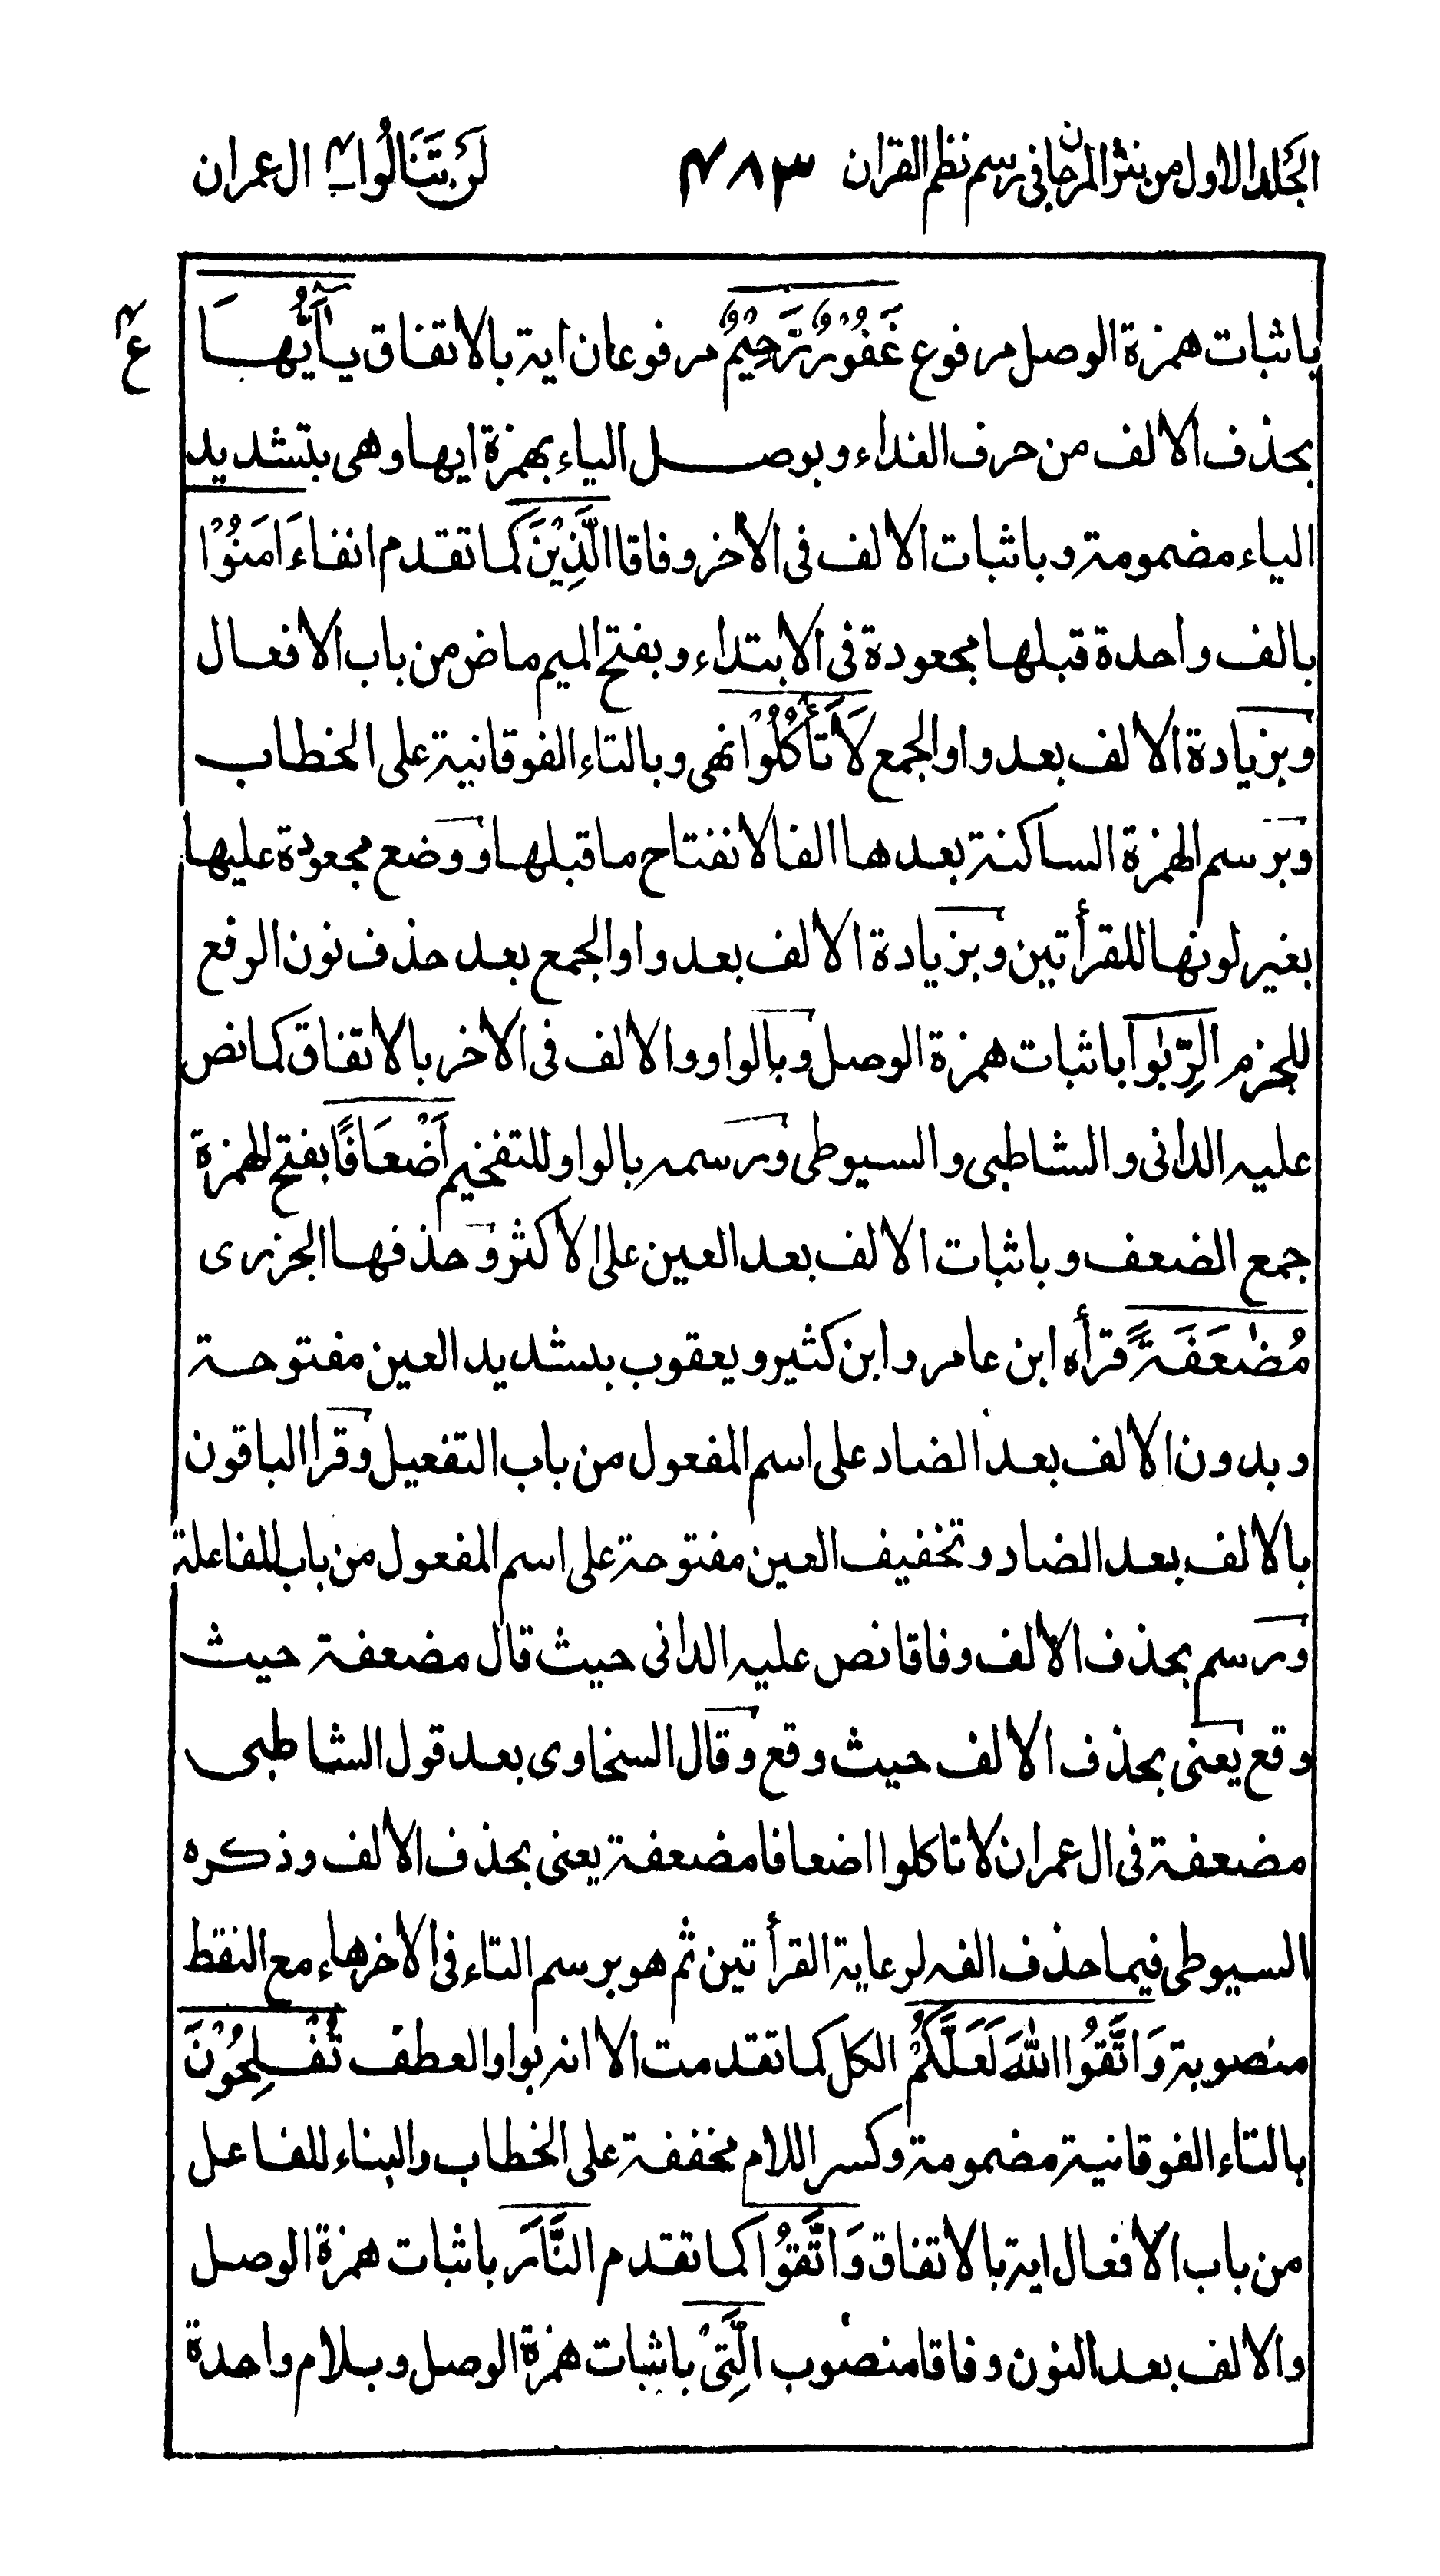 الجلد الاول من نثر المرجان فی رسم نظم القران ۴۸۳ لن تنالوا ۴ ال عمران
باثبات همزة الوصل مرفوع غَفُوْرٌ رَّحِیْمٌ مرفوعان ایة بالاتفاق یٰۤاَیُّهَا
ع ۴
بحذف الالف من حرف النداء وبوصل الیاء بهمزة ایها وهی بتشدید
الیاء مضمومة وباثبات الالف فی الاخر وفاقا الَّذِیْنَ کما تقدم انفاءَ امَنُوْا
بالف واحدة قبلها مجعودة فی الابتداء وبفتح المیم ماض من باب الافعال
وبزیادة الالف بعد واو الجمع لَا تَأْكُلُوْا نهی وبالتاء الفوقانیة علی الخطاب
وبرسم الهمزة الساکنة بعدها الفا لانفتاح ما قبلها ووضع مجعودة علیها
بغیر لونها للقرأتین وبزیادة الالف بعد واو الجمع بعد حذف نون الرفع
للجزم الرِّبٰوا باثبات همزة الوصل وبالواو والالف فی الاخر بالاتفاق کما نص
علیه الدانی والشاطبی والسیوطی ورسمه بالواو للتفخیم اَضْعَافًا بفتح الهمزة
جمع الضعف وباثبات الالف بعد العین علی الاکثر وحذفها الجزری
مُضٰعَفَةً قرأه ابن عامر وابن کثیر ویعقوب بتشدید العین مفتوحة
وبدون الالف بعد الضاد علی اسم المفعول من باب التفعیل وقرا الباقون
بالالف بعد الضاد وتخفیف العین مفتوحة علی اسم المفعول من باب المفاعلة
ورسم بحذف الالف وفاقا نص علیه الدانی حیث قال مضعفة حیث
وقع یعنی بحذف الالف حیث وقع وقال السخاوی بعد قول الشاطبی
مضعفة فی ال عمران لا تاکلوا اضعافا مضعفة یعنی بحذف الالف وذکره
السیوطی فیما حذف الفه لرعایة القرأتین ثم هو برسم التاء فی الاخر هاء مع النقط
منصوبة وَاتَّقُوا اللهَ لَعَلَّكُمْ الکل کما تقدمت الا انه بواو العطف تُفْلِحُوْنَ
بالتاء الفوقانیة مضمومة وکسر اللام مخففة علی الخطاب والبناء للفاعل
من باب الافعال ایة بالاتفاق وَاتَّقُوا کما تقدم النَّارَ باثبات همزة الوصل
والالف بعد النون وفاقا منصوب الَّتِیْ باثبات همزة الوصل وبلام واحدة